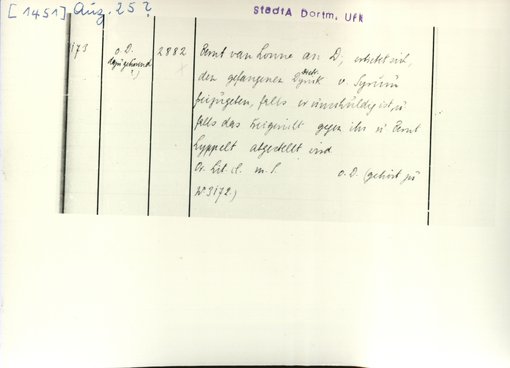 [1451] Aug. 25?
StadtA Dortm. Urk
173 o.D. 2882 Bernt van Lonne an D, erbietet sich,
dazugehörend den gefangenen Dyrick v. Syrum
freizugeben, falls er unschuldig ist, u
falls das Freigericht gegen ihn u Bernt
Lyppelt abgestellt wird
Or. Lit. cl. m. S. o.D. (gehört zu
No 3172)